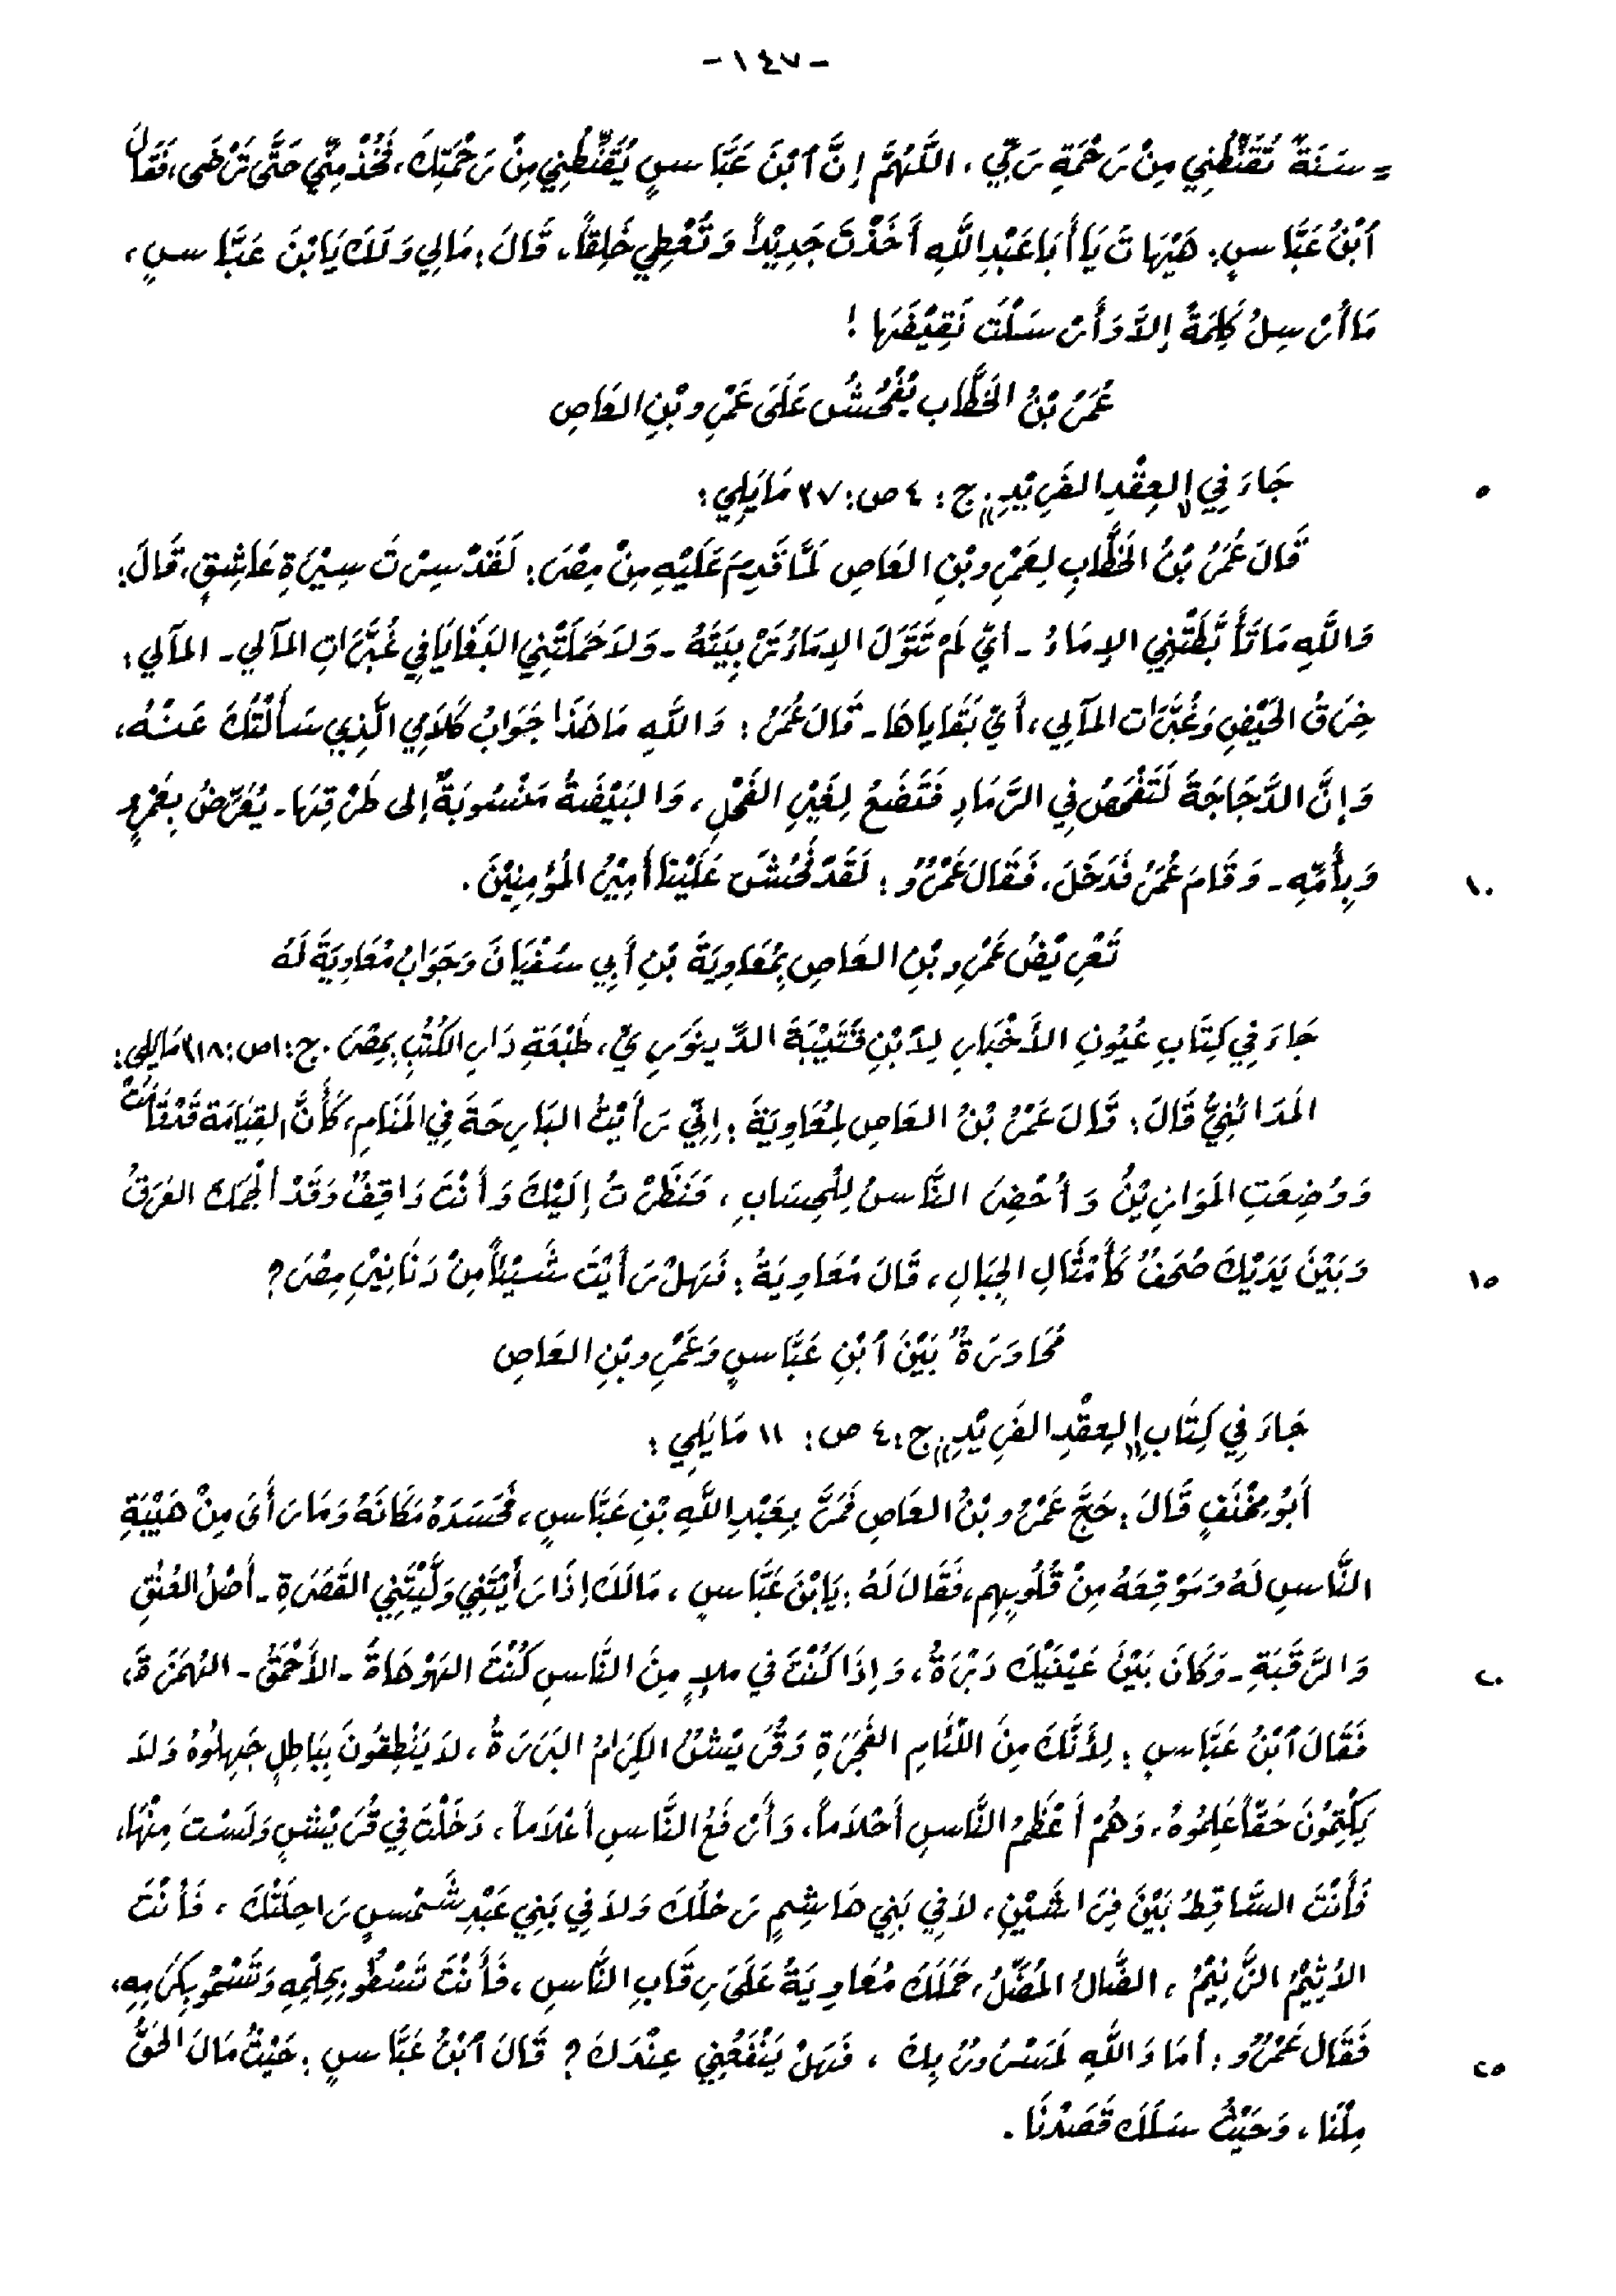 -١٤٧-
= سَنَةً تُقَنِّطُنِي مِنْ رَحْمَةِ رَبِّي، اللَّهُمَّ إِنَّ ٱبْنَ عَبَّاسٍ يُقَنِّطُنِي مِنْ رَحْمَتِكَ، فَخُذْ مِنِّي حَتَّى تَرْضَى، فَقَالَ
ٱبْنُ عَبَّاسٍ: هَيْهَاتَ يَا أَبَا عَبْدِ اللَّهِ أَخَذْتَ جَدِيْداً وَتُعْطِي خَلِقاً، قَالَ: مَالِي وَلَكَ يَابْنَ عَبَّاسٍ،
مَا أُرْسِلُ كَلِمَةً إِلاَّ وَأَرْسَلْتَ نَقِيْضَهَا!
عُمَرُ بْنُ الخَطَّاب يُفْحُشُ عَلَى عَمْرِو بْنِ العَاصِ
٥
جَاءَ فِي "العِقْدِ الفَرِيْدِ" ج: ٤ ص: ٣٧ مَا يَلِي:
قَالَ عُمَرُ بْنُ الخَطَّابِ لِعَمْرِو بْنِ العَاصِ لَمَّا قَدِمَ عَلَيْهِ مِنْ مِصْرَ: لَقَدْ سِرْتَ سِيْرَةِ عَاشِقٍ، قَالَ:
وَاللَّهِ مَا تَأَبَّطَتْنِي الإِمَاءُ - أَيْ لَمْ تَتَوَلَ الإِمَاءُ تَرْبِيَتَهُ - وَلاَ حَمَلَتْنِي البَغَايَا فِي غُبَّرَاتِ المَآلِي - المآلي:
خِرَقُ الحَيْضِ وَغُبَّرَات المَآلِي، أَيْ بَقَايَاهَا - قَالَ عُمَرُ: وَاللَّهِ مَا هَذَا جَوَابُ كَلاَمِي الَّذِي سَأَلْتُكَ عَنْهُ،
وَإِنَّ الدَّجَاجَةَ لَتَفْحَصُ فِي الرَّمَادِ فَتَضَعُ لِغَيْرِ الفَحْلِ، وَالبَيْضَةُ مَنْسُوبَةٌ إلى طَرْقِهَا - يُعَرِّضُ بِعَمْرٍو
١٠
وَبِأُمِّهِ - وَقَامَ عُمَرُ فَدَخَلَ، فَقَالَ عَمْرٌو: لَقَدْ فَحُشَ عَلَيْنَا أَمِيْرُ المُؤْمِنِيْنَ.
تَعْرِيْضُ عَمْرِو بْنِ العَاصِ بِمُعَاوِيَةَ بْنِ أَبِي سُفْيَانَ وَجَوَابُ مُعَاوِيَةَ لَهُ
جَاءَ فِي كِتَابِ عُيُونِ الأَخْبَارِ لِابْنِ قُتَيْبَةَ الدِّينَوَرِيِّ، طَبْعَةِ دَارِ الكُتُبِ بِمِصْرَ. ج: ١ ص: ٣١٨ مَا يَلِي:
المَدَائِنِيُّ قَالَ: قَالَ عَمْرُ بْنُ العَاصِ لِمُعَاوِيَةَ: إِنِّي رَأَيْتُ البَارِحَةَ فِي المَنَامِ، كَأَنَّ القِيَامَةَ قَدْ قَامَتْ
وَوُضِعَتِ المَوَازِيْنُ وَأُحْضِرَ النَّاسُ لِلْحِسَابِ، فَنَظَرْتُ إِلَيْكَ وَأَنْتَ وَاقِفٌ وَقَدْ أَلْجَمَكَ العَرَقُ
١٥
وَبَيْنَ يَدَيْكَ صُحَفٌ كَأَمْثَالِ الجِبَالِ، قَالَ مُعَاوِيَةُ: فَهَلْ رَأَيْتَ شَيْئاً مِنْ دَنَانِيْرِ مِصْرَ؟
مُحَاوَرَةٌ بَيْنَ ٱبْنِ عَبَّاسٍ وَعَمْرِو بْنِ العَاصِ
جَاءَ فِي كِتَابِ "العِقْدِ الفَرِيْدِ" ج: ٤ ص: ١١ مَا يَلِي:
أَبُو مِخْنَفٍ قَالَ: حَجَّ عَمْرُو بْنُ العَاصِ فَمَرَّ بِعَبْدِ اللَّهِ بْنِ عَبَّاسٍ، فَحَسَدَهُ مَكَانَهُ وَمَا رَأَى مِنْ هَيْبَةِ
النَّاسِ لَهُ وَمَوْقِعَهُ مِنْ قُلُوبِهِم، فَقَالَ لَهُ: يَابْنَ عَبَّاسٍ، مَالَكَ إِذَا رَأَيْتَنِي وَلَّيْتَنِي القَصَرَةِ - أَصْلُ العُنُقِ
٢٠
وَالرَّقَبَةِ - وَكَانَ بَيْنَ عَيْنَيْكَ دَبْرَةٌ، وَإِذَا كُنْتَ فِي ملإٍ مِنَ النَّاسِ كُنْتَ الهَوْهَاةَ - الأَحْمَقُ - الهُمَزَةَ،
فَقَالَ ٱبْنُ عَبَّاسٍ: لِأَنَّكَ مِنَ اللِّئَامِ الفَجَرَةِ وَقُرَيْشُ الكِرَامُ البَرَرَةُ، لاَ يَنْطِقُونَ بِبَاطِلٍ جَهِلُوهُ وَلاَ
يَكْتِمُونَ حَقّاً عَلِمُوهُ، وَهُمْ أَعْظَمُ النَّاسِ أَحْلاَماً، وَأَرْفَعُ النَّاسِ أَعْلاَماً، دَخَلْتَ فِي قُرَيْشٍ وَلَسْتَ مِنْهَا،
فَأَنْتَ السَّاقِطُ بَيْنَ فِرَاشَيْنِ، لاَ فِي بَنِي هَاشِمٍ رَحْلُكَ وَلاَ فِي بَنِي عَبْدِ شَمْسٍ رَاحِلَتُكَ، فَأَنْتَ
الأَثِيْمُ الزَّنِيْمُ، الضَّالُ المُضِّلُ، حَمَلَكَ مُعَاوِيَةُ عَلَى رِقَابِ النَّاسِ، فَأَنْتَ تَسْطُو بِحِلْمِهِ وَتَسْمُو بِكَرَمِهِ،
٢٥
فَقَالَ عَمْرٌو: أَمَا وَاللَّهِ لَمَسْرُورٌ بِكَ، فَهَلْ يَنْفَعُنِي عِنْدَكَ؟ قَالَ ٱبْنُ عَبَّاسٍ: حَيْثُ مَالَ الحَقُّ
مِلْنَا، وَحَيْثُ سَلَكَ قَصَدْنَا.